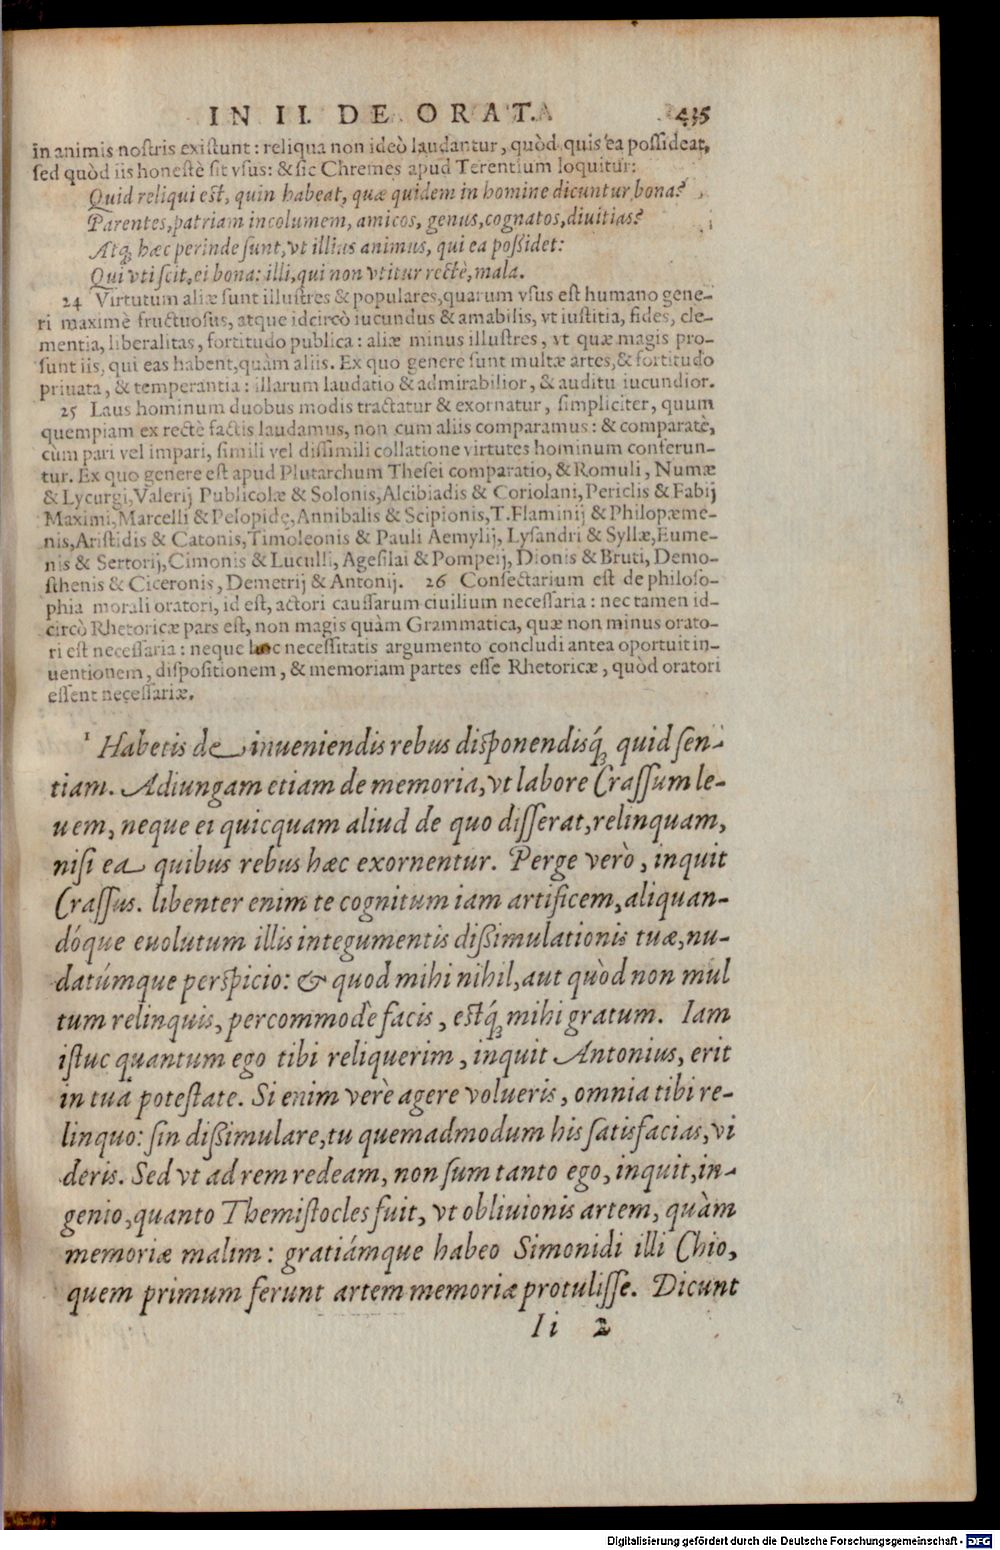 IN II. DE ORAT. 435
in animis nostris existunt: reliqua non ideò laudantur, quòd quis ea possideat,
sed quòd iis honestè sit vsus: & sic Chremes apud Terentium loquitur:
Quid reliqui est, quin habeat, quæ quidem in homine dicuntur bona?
Parentes, patriam incolumem, amicos, genus, cognatos, diuitias?
Atq; hæc perinde sunt, vt illius animus, qui ea possidet:
Qui vti scit, ei bona: illi, qui non vtitur rectè, mala.
24 Virtutum aliæ sunt illustres & populares, quarum vsus est humano gene-
ri maximè fructuosus, atque idcircò iucundus & amabilis, vt iustitia, fides, cle-
mentia, liberalitas, fortitudo publica: aliæ minus illustres, vt quæ magis pro-
sunt iis, qui eas habent, quàm aliis. Ex quo genere sunt multæ artes, & fortitudo
priuata, & temperantia: illarum laudatio & admirabilior, & auditu iucundior.
25 Laus hominum duobus modis tractatur & exornatur, simpliciter, quum
quempiam ex rectè factis laudamus, non cum aliis comparamus: & comparatè,
cùm pari vel impari, simili vel dissimili collatione virtutes hominum conferun-
tur. Ex quo genere est apud Plutarchum Thesei comparatio, & Romuli, Numæ
& Lycurgi, Valerij Publicolæ & Solonis, Alcibiadis & Coriolani, Periclis & Fabij
Maximi, Marcelli & Pelopidę, Annibalis & Scipionis, T. Flaminij & Philopæme-
nis, Aristidis & Catonis, Timoleonis & Pauli Aemylij, Lysandri & Syllæ, Eume-
nis & Sertorij, Cimonis & Luculli, Agesilai & Pompeij, Dionis & Bruti, Demo-
sthenis & Ciceronis, Demetrij & Antonij. 26 Consectarium est de philoso-
phia morali oratori, id est, actori caussarum ciuilium necessaria: nec tamen id-
circò Rhetoricæ pars est, non magis quàm Grammatica, quæ non minus orato-
ri est necessaria: neque hoc necessitatis argumento concludi antea oportuit in-
uentionem, dispositionem, & memoriam partes esse Rhetoricæ, quòd oratori
essent necessariæ.
1 Habetis de inueniendis rebus disponendisq́; quid sen-
tiam. Adiungam etiam de memoria, vt labore Crassum le-
uem, neque ei quicquam aliud de quo disserat, relinquam,
nisi ea quibus rebus hæc exornentur. Perge verò, inquit
Crassus. libenter enim te cognitum iam artificem, aliquan-
dóque euolutum illis integumentis dissimulationis tuæ, nu-
datúmque perspicio: & quod mihi nihil, aut quòd non mul
tum relinquis, percommodè facis, estq́; mihi gratum. Iam
istuc quantum ego tibi reliquerim, inquit Antonius, erit
in tua potestate. Si enim verè agere volueris, omnia tibi re-
linquo: sin dissimulare, tu quemadmodum his satisfacias, vi
deris. Sed vt ad rem redeam, non sum tanto ego, inquit, in-
genio, quanto Themistocles fuit, vt obliuionis artem, quàm
memoriæ malim: gratiámque habeo Simonidi illi Chio,
quem primum ferunt artem memoriæ protulisse. Dicunt
Ii 2
Digitalisierung gefördert durch die Deutsche Forschungsgemeinschaft - DFG